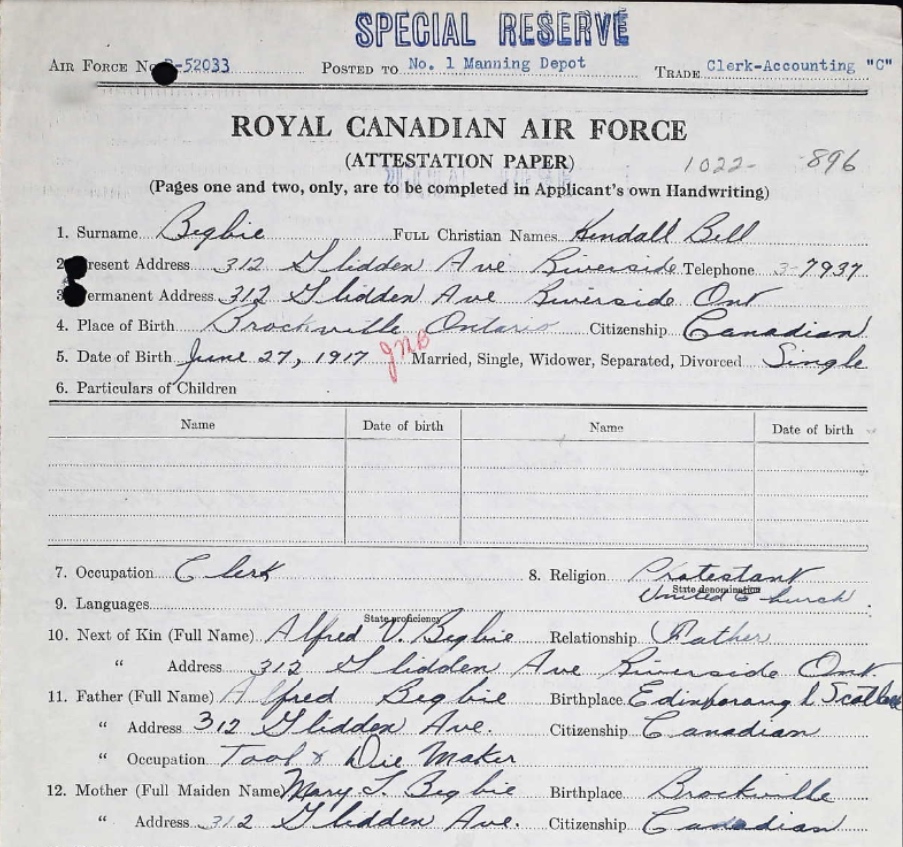 SPECIAL RESERVE
AIR FORCE No. R-52033 POSTED TO No. 1 Manning Depot TRADE Clerk-Accounting "C"
ROYAL CANADIAN AIR FORCE
(ATTESTATION PAPER) 1022- -896
(Pages one and two, only, are to be completed in Applicant's own Handwriting)
1. Surname Begbie FULL Christian Names Kendall Bell
2. Present Address 312 Glidden Ave Riverside Telephone 3-7937
3. Permanent Address 312 Glidden Ave Riverside Ont
4. Place of Birth Brockville Ontario Citizenship Canadian
5. Date of Birth June 27, 1917 Married, Single, Widower, Separated, Divorced Single
6. Particulars of Children
Name Date of birth Name Date of birth
7. Occupation Clerk 8. Religion Protestant
State denomination
United Church
9. Languages
State proficiency
10. Next of Kin (Full Name) Alfred V. Begbie Relationship Father
" Address 312 Glidden Ave Riverside Ont.
11. Father (Full Name) Alfred Begbie Birthplace Edinborough Scotland
" Address 312 Glidden Ave. Citizenship Canadian
" Occupation Tool & Die Maker
12. Mother (Full Maiden Name) Mary L. Begbie Birthplace Brockville
" Address 312 Glidden Ave. Citizenship Canadian